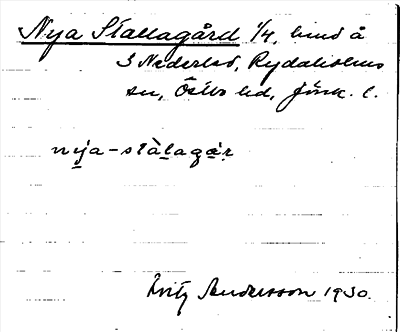 Nya Stallagård 1/4, hemd å
S Nederled, Rydaholms
sn, Östbo hd, Jönk. l.
nyja-stàlagár
Fritz Andersson 1930.